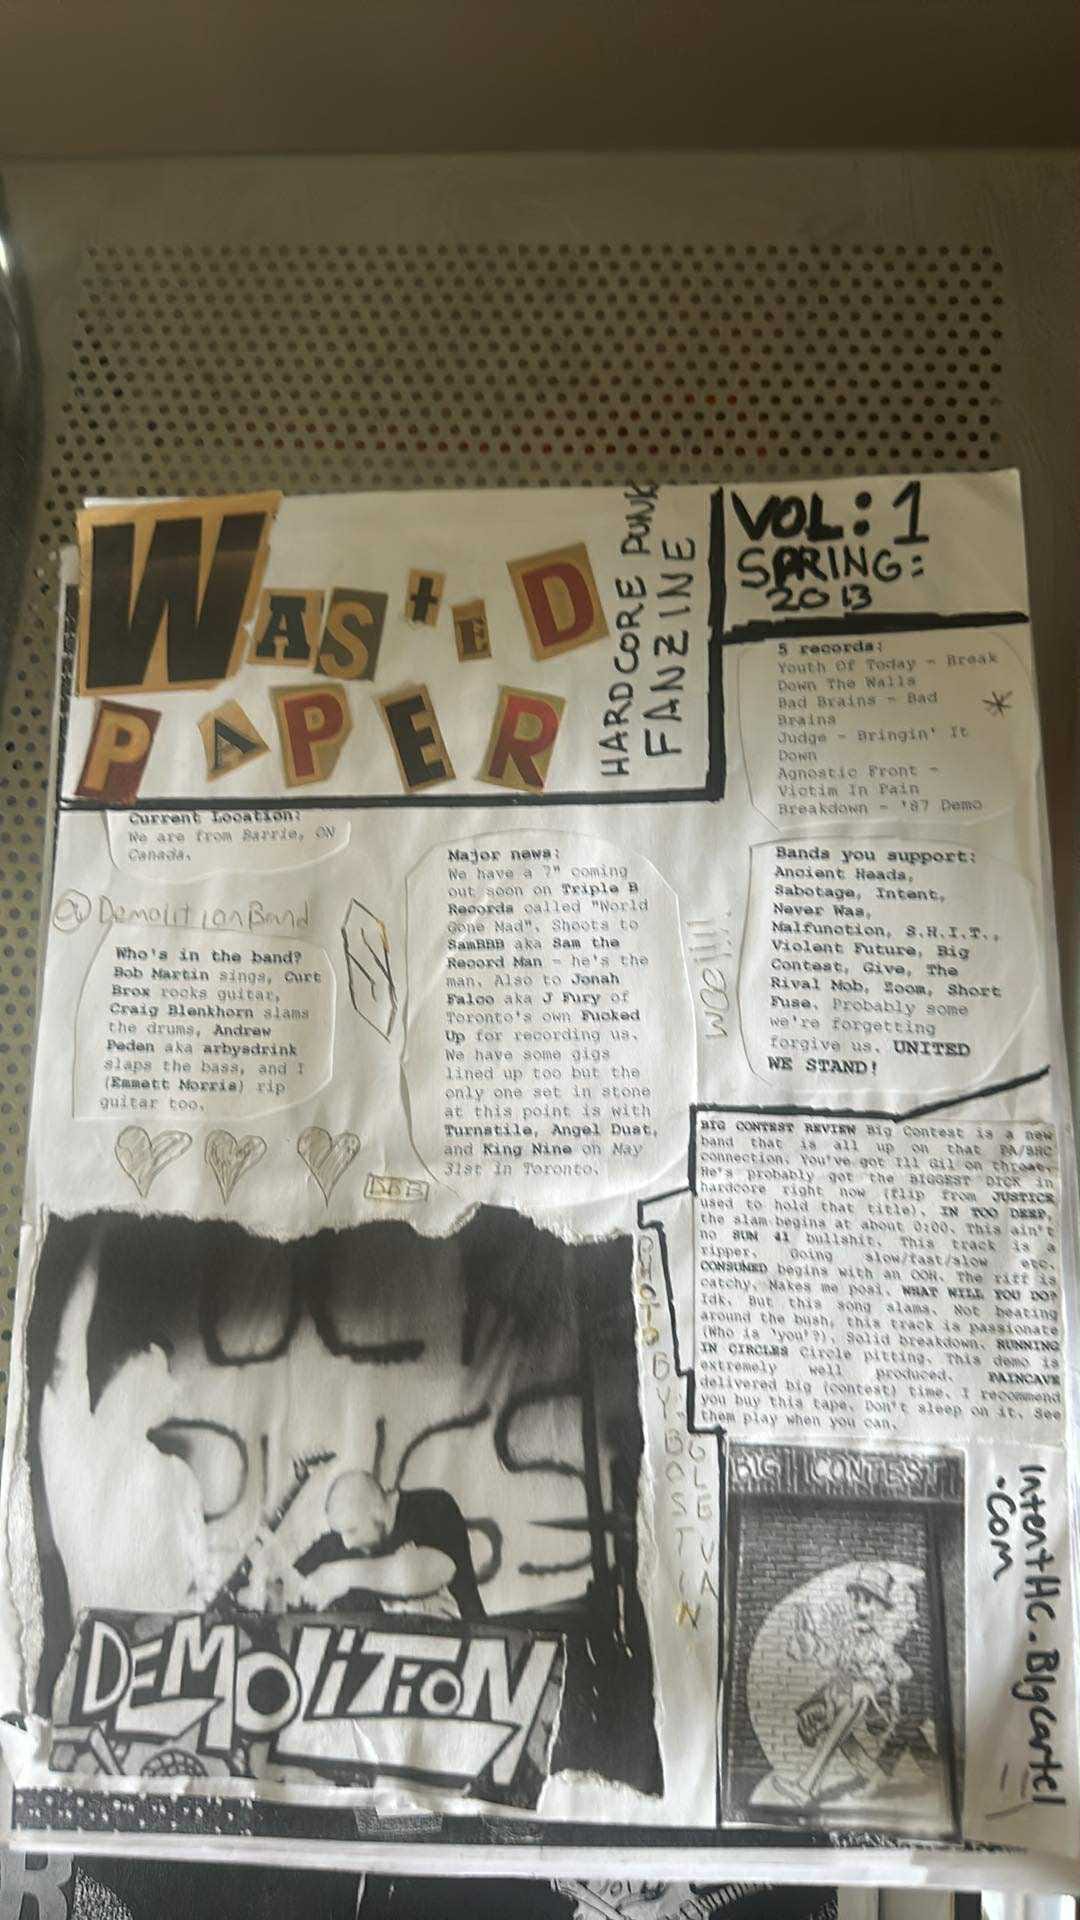 WAStED
PAPER
HARDCORE PUNK
FANZINE
VOL: 1
SPRING:
2013
5 records:
Youth Of Today - Break
Down The Walls
Bad Brains - Bad
Brains
Judge - Bringin' It
Down
Agnostic Front -
Victim In Pain
Breakdown - '87 Demo
Current Location:
We are from Barrie, ON
Canada.
@DemolitionBand
Who's in the band?
Bob Martin sings, Curt
Brox rocks guitar,
Craig Blenkhorn slams
the drums, Andrew
Peden aka arbysdrink
slaps the bass, and I
(Emmett Morris) rip
guitar too.
Major news:
We have a 7" coming
out soon on Triple B
Records called "World
Gone Mad". Shoots to
SamBBB aka Sam the
Record Man - he's the
man. Also to Jonah
Falco aka J Fury of
Toronto's own Fucked
Up for recording us.
We have some gigs
lined up too but the
only one set in stone
at this point is with
Turnstile, Angel Dust,
and King Nine on May
31st in Toronto.
BBB
Bands you support:
Ancient Heads,
Sabotage, Intent,
Never Was,
Malfunction, S.H.I.T.,
Violent Future, Big
Contest, Give, The
Rival Mob, Zoom, Short
Fuse. Probably some
we're forgetting
forgive us. UNITED
WE STAND!
BIG CONTEST REVIEW Big Contest is a new
band that is all up on that PA/BHC
connection. You've got Ill Gil on throat.
He's probably got the BIGGEST DICK in
hardcore right now (flip from JUSTICE
used to hold that title). IN TOO DEEP,
the slam begins at about 0:00. This ain't
no SUM 41 bullshit. This track is a
ripper. Going slow/fast/slow etc.
CONSUMED begins with an OOH. The riff is
catchy. Makes me posi. WHAT WILL YOU DO?
Idk. But this song slams. Not beating
around the bush, this track is passionate
(Who is 'you'?). Solid breakdown. RUNNING
IN CIRCLES Circle pitting. This demo is
extremely well produced. PAINCAVE
delivered big (contest) time. I recommend
you buy this tape. Don't sleep on it. See
them play when you can.
PHOTO BY: BOSTIN
GLEVA
DEMOLiTiON
BIG CONTEST
IntentHC.BIgcartel
.com